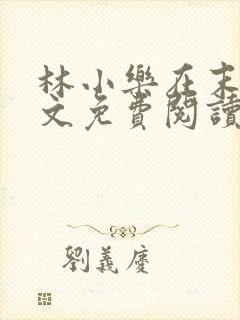 林小樂在末
文免費閱讀
劉義慶